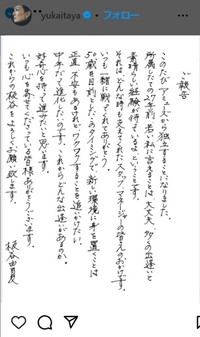 yukaitaya
フォロー
ご報告
このたびアミューズから独立することになりました。
所属したての27年前、若い私に言えることは、大丈夫、多くの出逢いと
素晴らしい経験が待っているよ ということです。
それは、どんな時も支えてくれたスタッフ、マネージャーの皆さんのおかげです。
いつも一緒に戦ってくれてありがとう。
50歳を目前としたこのタイミングで新しい環境に身を置くことは
正直、不安もあるけれどワクワクすることを追いかけたい。
まだまだ進化したいです。これからどんな出逢いがあるのか。
好奇心を持って進みたいと思います。
いつも心を寄せてくださっている皆様ありがとうございます。
これからの板谷をよろしくお願い致します。
板谷由夏